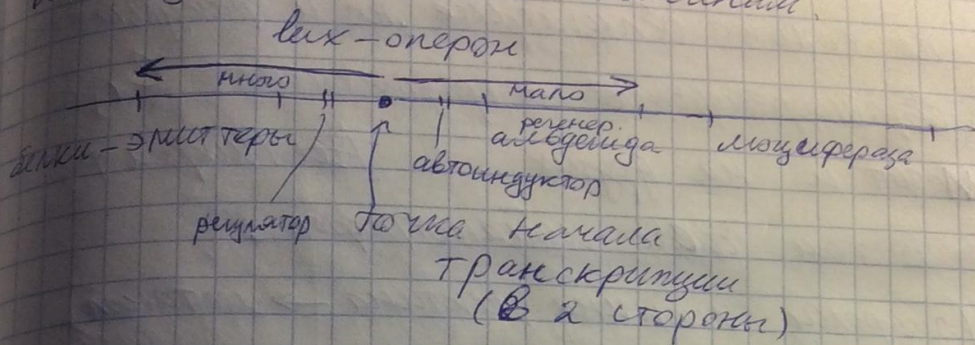 lux-оперон
много мало
белки-эмиттеры
регенер.
альдегида
люцифераза
автоиндуктор
регулятор точка начала
транскрипции
(в 2 стороны)